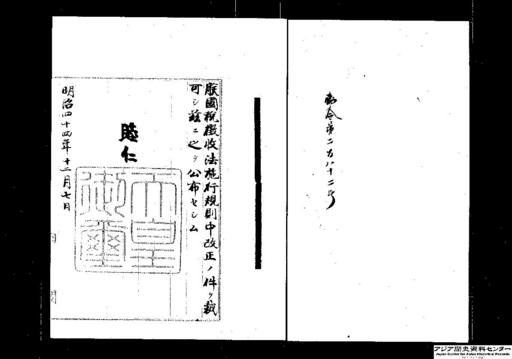 勅令第二百八十二号
朕國稅徵收法施行規則中改正ノ件ヲ裁
可シ茲ニ之ヲ公布セシム
睦仁
天皇御璽
明治四十四年十二月七日
内閣
アジア歴史資料センター
Japan Center for Asian Historical Records